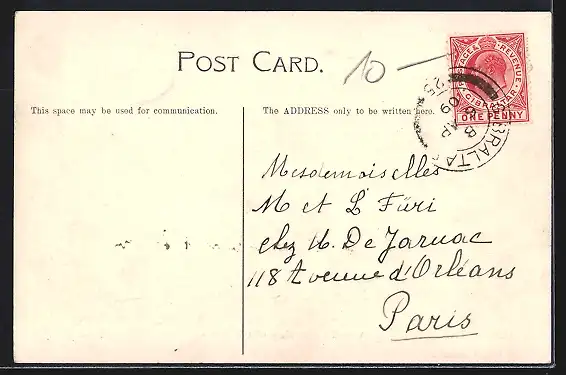 POST CARD.
10
POSTAGE & REVENUE
GIBRALTAR
ONE PENNY
GIBRALTAR
8 AP
09
25
This space may be used for communication.
The ADDRESS only to be written here.
Mesdemoiselles
M et L Füri
chez M. De Jarnac
118 Avenue d'Orléans
Paris